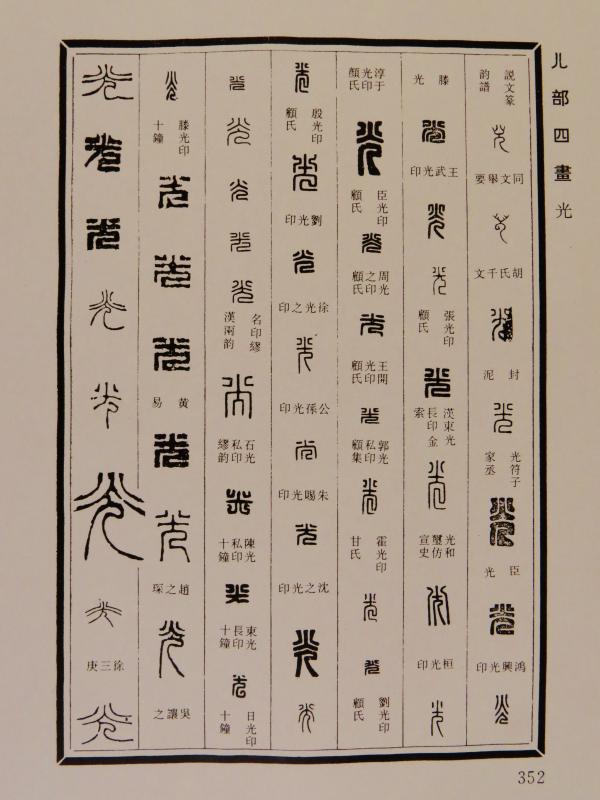 儿部四畫光
説文篆
韵譜
同文舉要
胡氏千文
封泥
光符子
家丞
臣光
鴻興光印
滕光
王武光印
張光印
顧氏
漢東光
長印金
索
光和
璽仿
宣史
桓光印
淳于
光印
顏氏
臣光印
顧氏
周光
之印
顧氏
王開
光印
顧氏
郭光
私印
顧集
霍光印
甘氏
劉光印
顧氏
殷光印
顧氏
劉光印
徐光之印
公孫光印
朱賜光印
沈之光印
名印繆
漢兩韵
石光
私印
繆韵
陳光
私印
十鐘
東光
長印
十鐘
日光印
十鐘
滕光印
十鐘
黃易
趙之琛
吳讓之
徐三庚
352